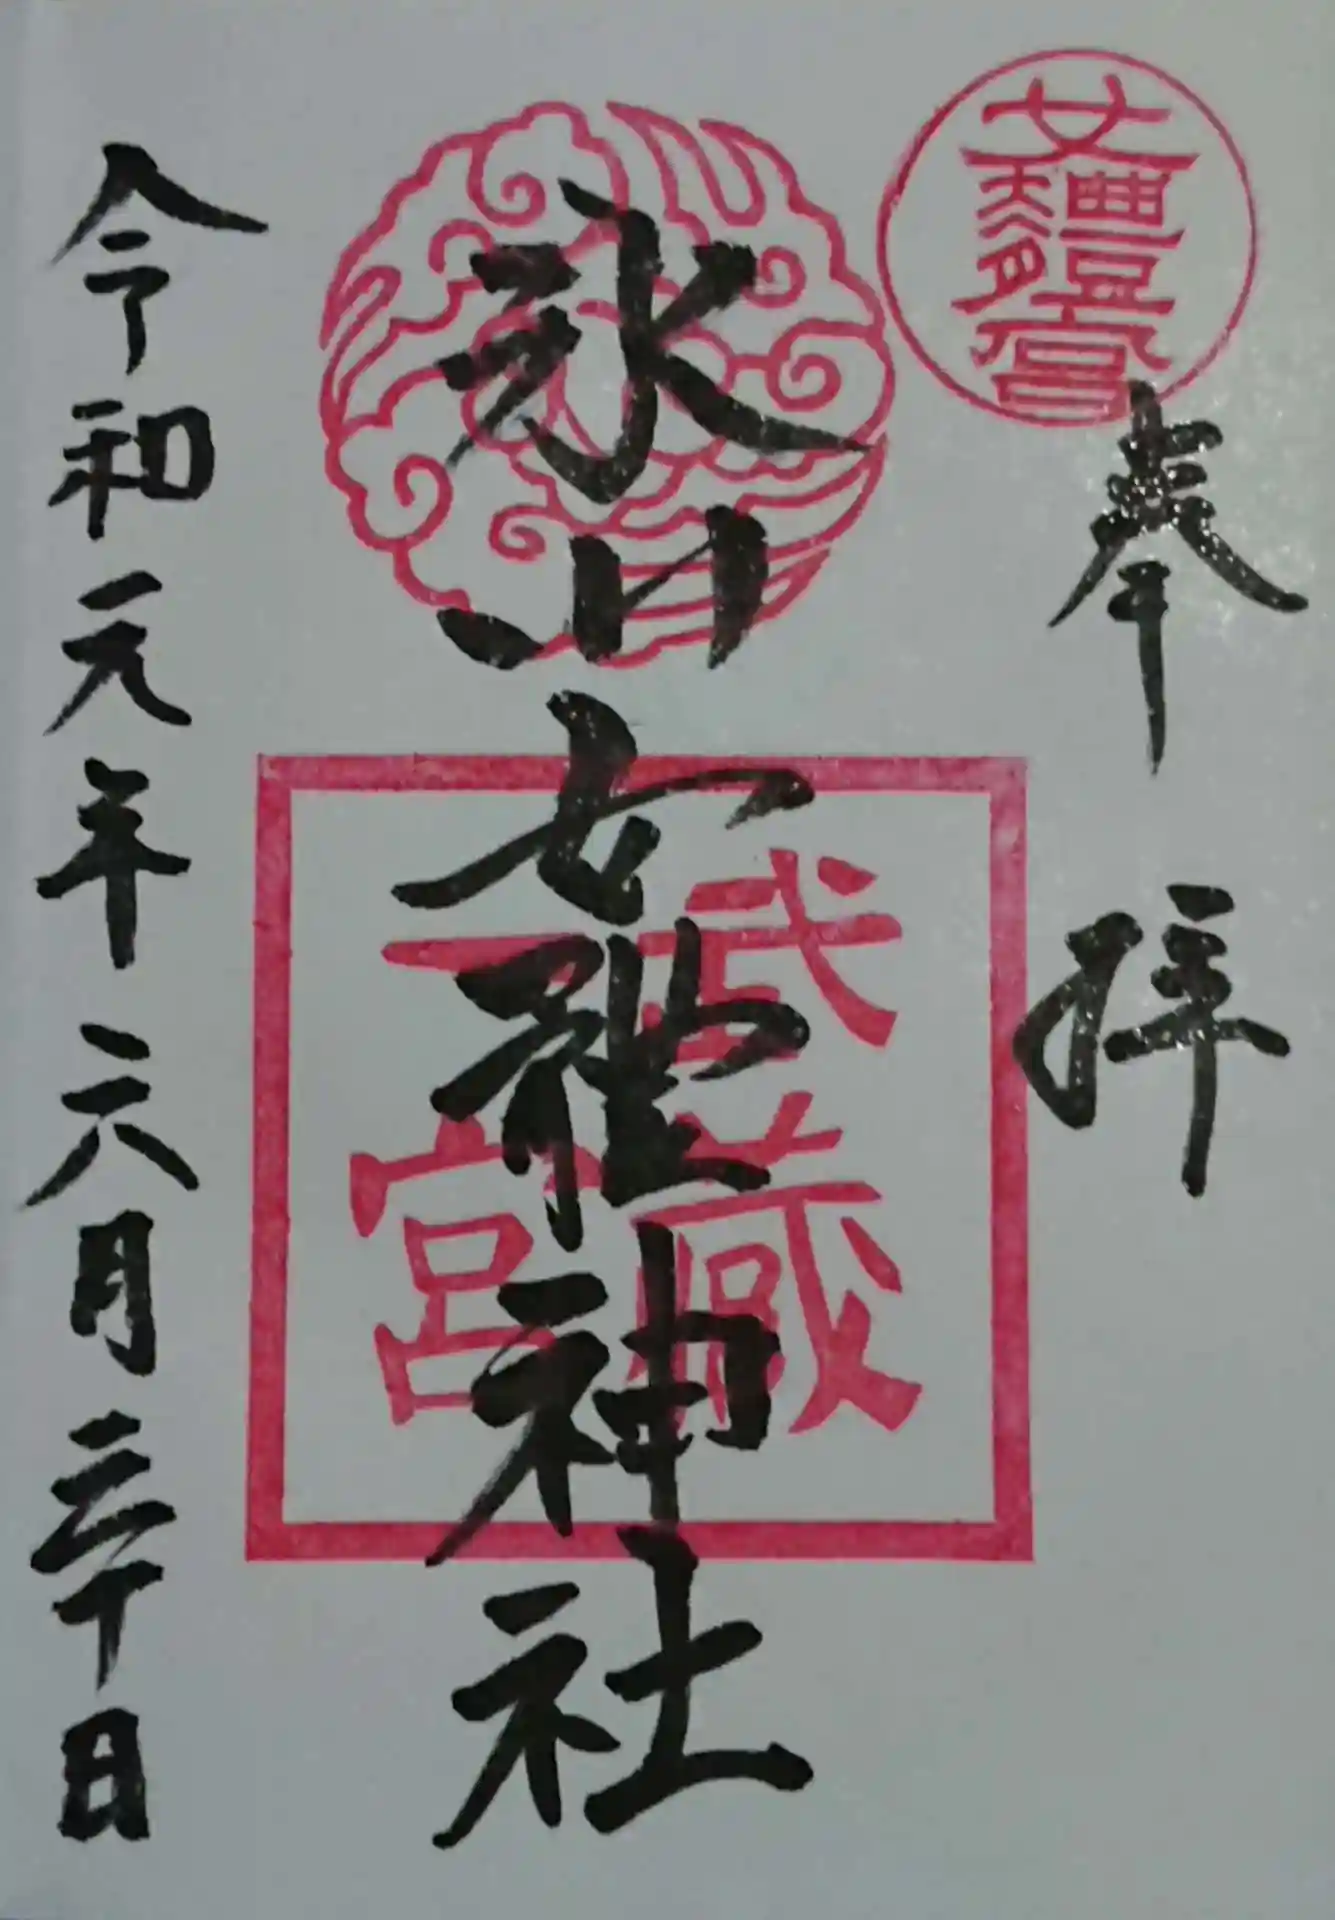 奉拝
女體宮
氷川女体神社
武蔵
一宮
令和元年六月三十日